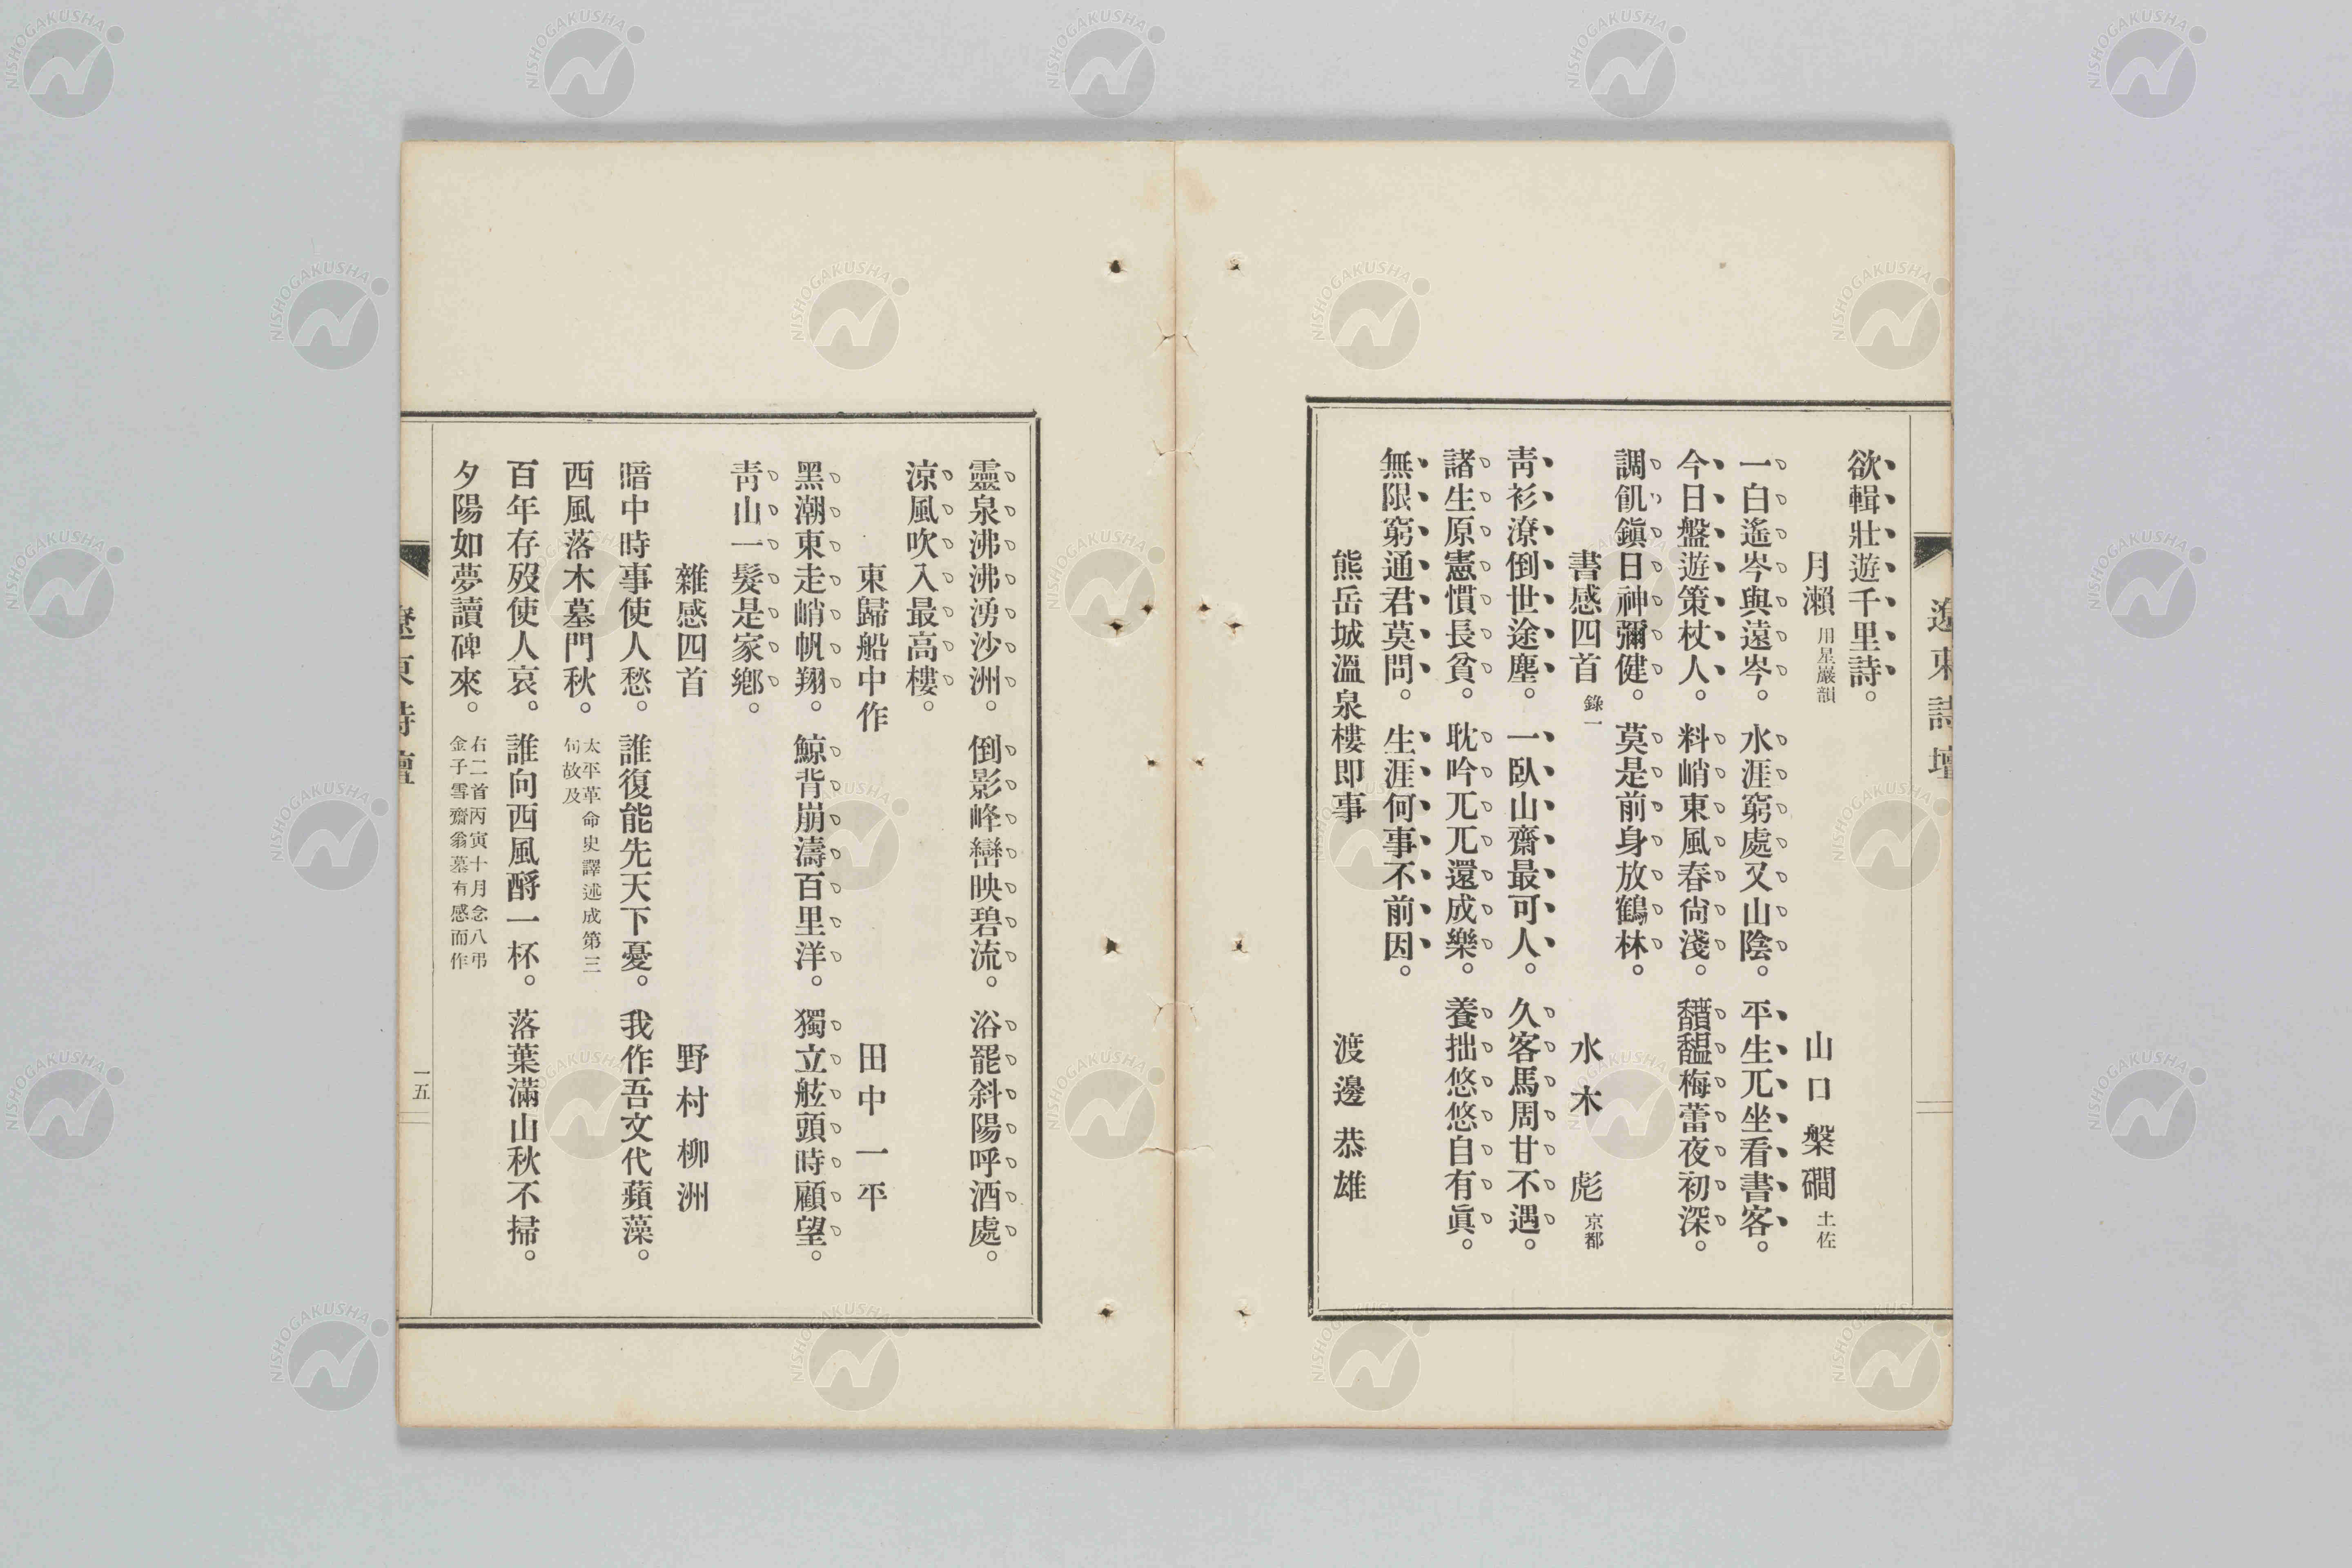 遼東詩壇
欲輯壯遊千里詩。
月瀨 用星巖韻 山口槃磵 土佐
一白遙岑與遠岑。水涯窮處又山陰。平生兀坐看書客。
今日盤遊策杖人。料峭東風春尙淺。馣馧梅蕾夜初深。
調飢鎭日神彌健。莫是前身放鶴林。
書感四首 錄一 水木 彪 京都
靑衫潦倒世途塵。一臥山齋最可人。久客馬周甘不遇。
諸生原憲慣長貧。耽吟兀兀還成樂。養拙悠悠自有眞。
無限窮通君莫問。生涯何事不前因。
熊岳城溫泉樓即事 渡邊恭雄
靈泉沸沸湧沙洲。倒影峰巒映碧流。浴罷斜陽呼酒處。
涼風吹入最高樓。
東歸船中作 田中一平
黑潮東走峭帆翔。鯨背崩濤百里洋。獨立舷頭時顧望。
靑山一髮是家鄕。
雜感四首 野村柳洲
暗中時事使人愁。誰復能先天下憂。我作吾文代蘋藻。
西風落木墓門秋。太平革命史譯述成第三
句故及
百年存歿使人哀。誰向西風酹一杯。落葉滿山秋不掃。
夕陽如夢讀碑來。右二首丙寅十月念八弔
金子雪齋翁墓有感而作
遼東詩壇
一五
NISHOGAKUSHA